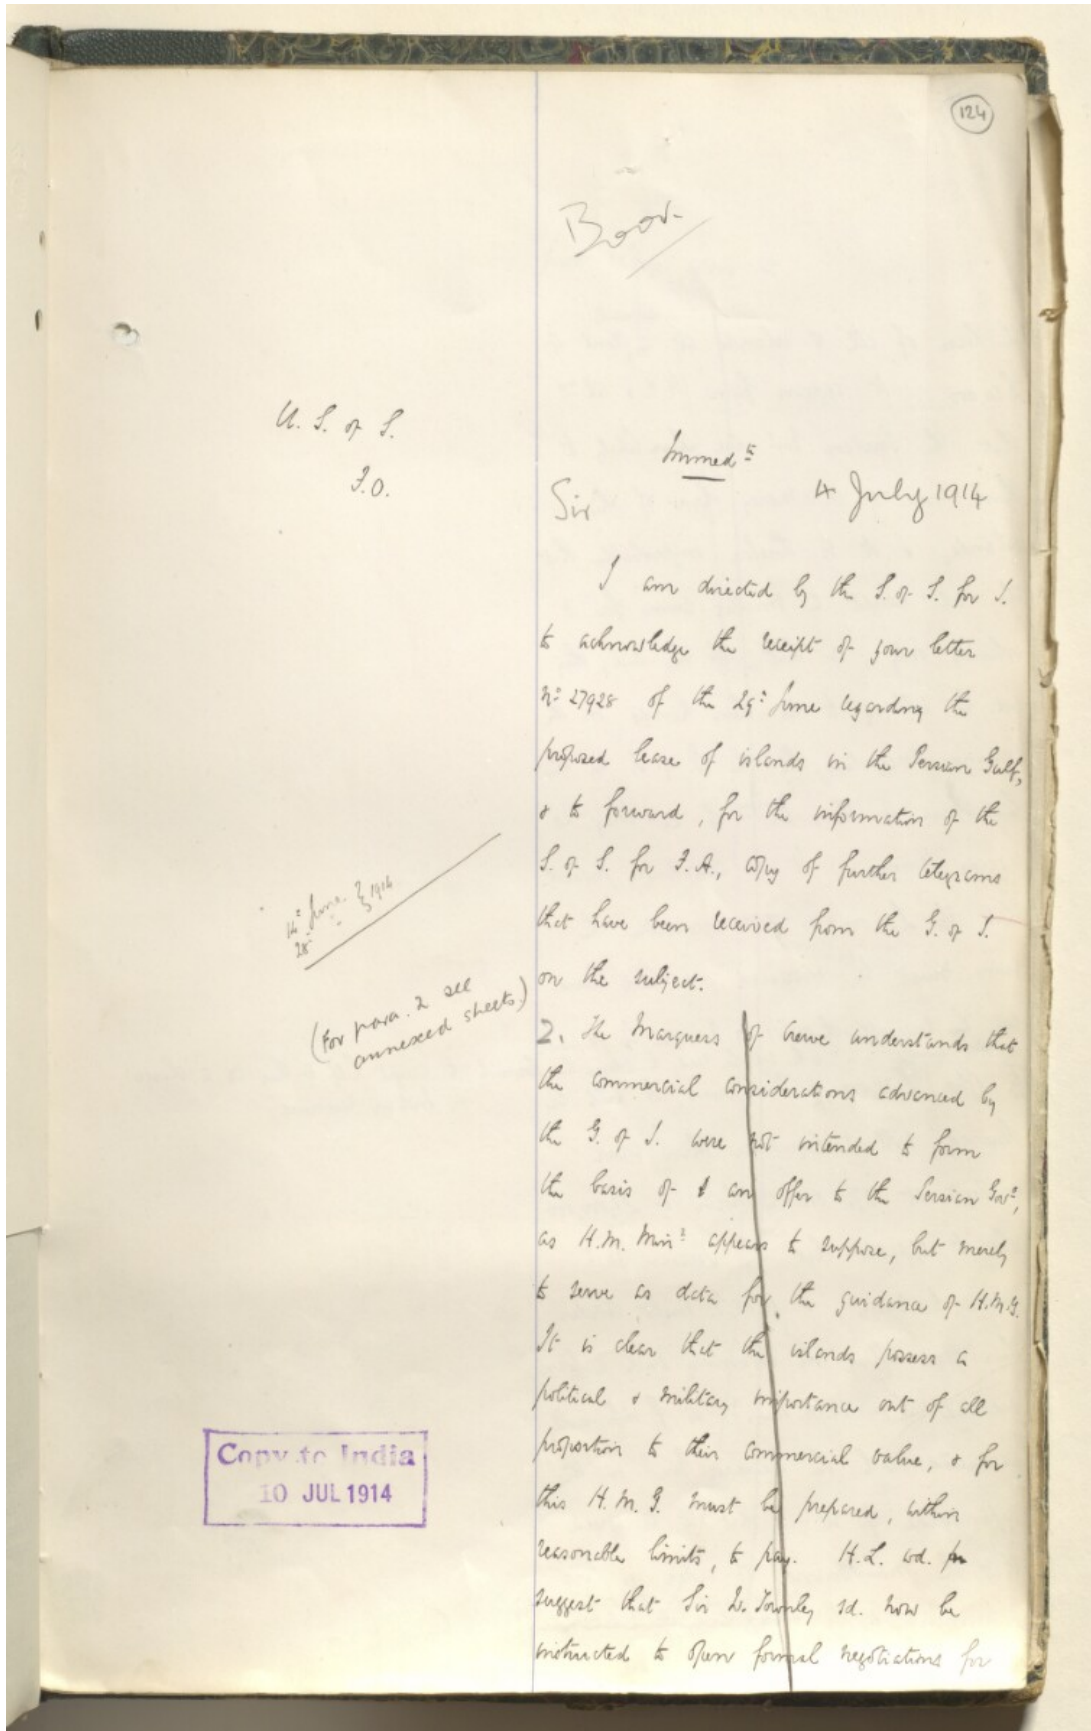 124
U. S. of S.
F.O.
Immed<sup>te</sup>
Sir
4 July 1914
I am directed by the S. of S. for I.
to acknowledge the receipt of your letter
Nº 27928 of the 29: June regarding the
proposed lease of islands in the Persian Gulf,
& to forward, for the information of the
S. of S. for F.A., copy of further telegrams
that have been received from the G. of I.
on the subject.
14: June. } 1914
28: " }
(For para. 2 see
annexed sheets.)
2. The Marquess of Crewe understands that
the commercial considerations advanced by
the G. of I. were not intended to form
the basis of an offer to the Persian Govt,
as H.M. Minr appears to suppose, but merely
to serve as data for the guidance of H.M.G.
It is clear that the islands possess a
political & military importance out of all
proportion to their commercial value, & for
this H. M. G. must be prepared, within
reasonable limits, to pay. H.L. wd.
suggest that Sir W. Townley sd. now be
instructed to open formal negotiations for
Copy to India
10 JUL 1914